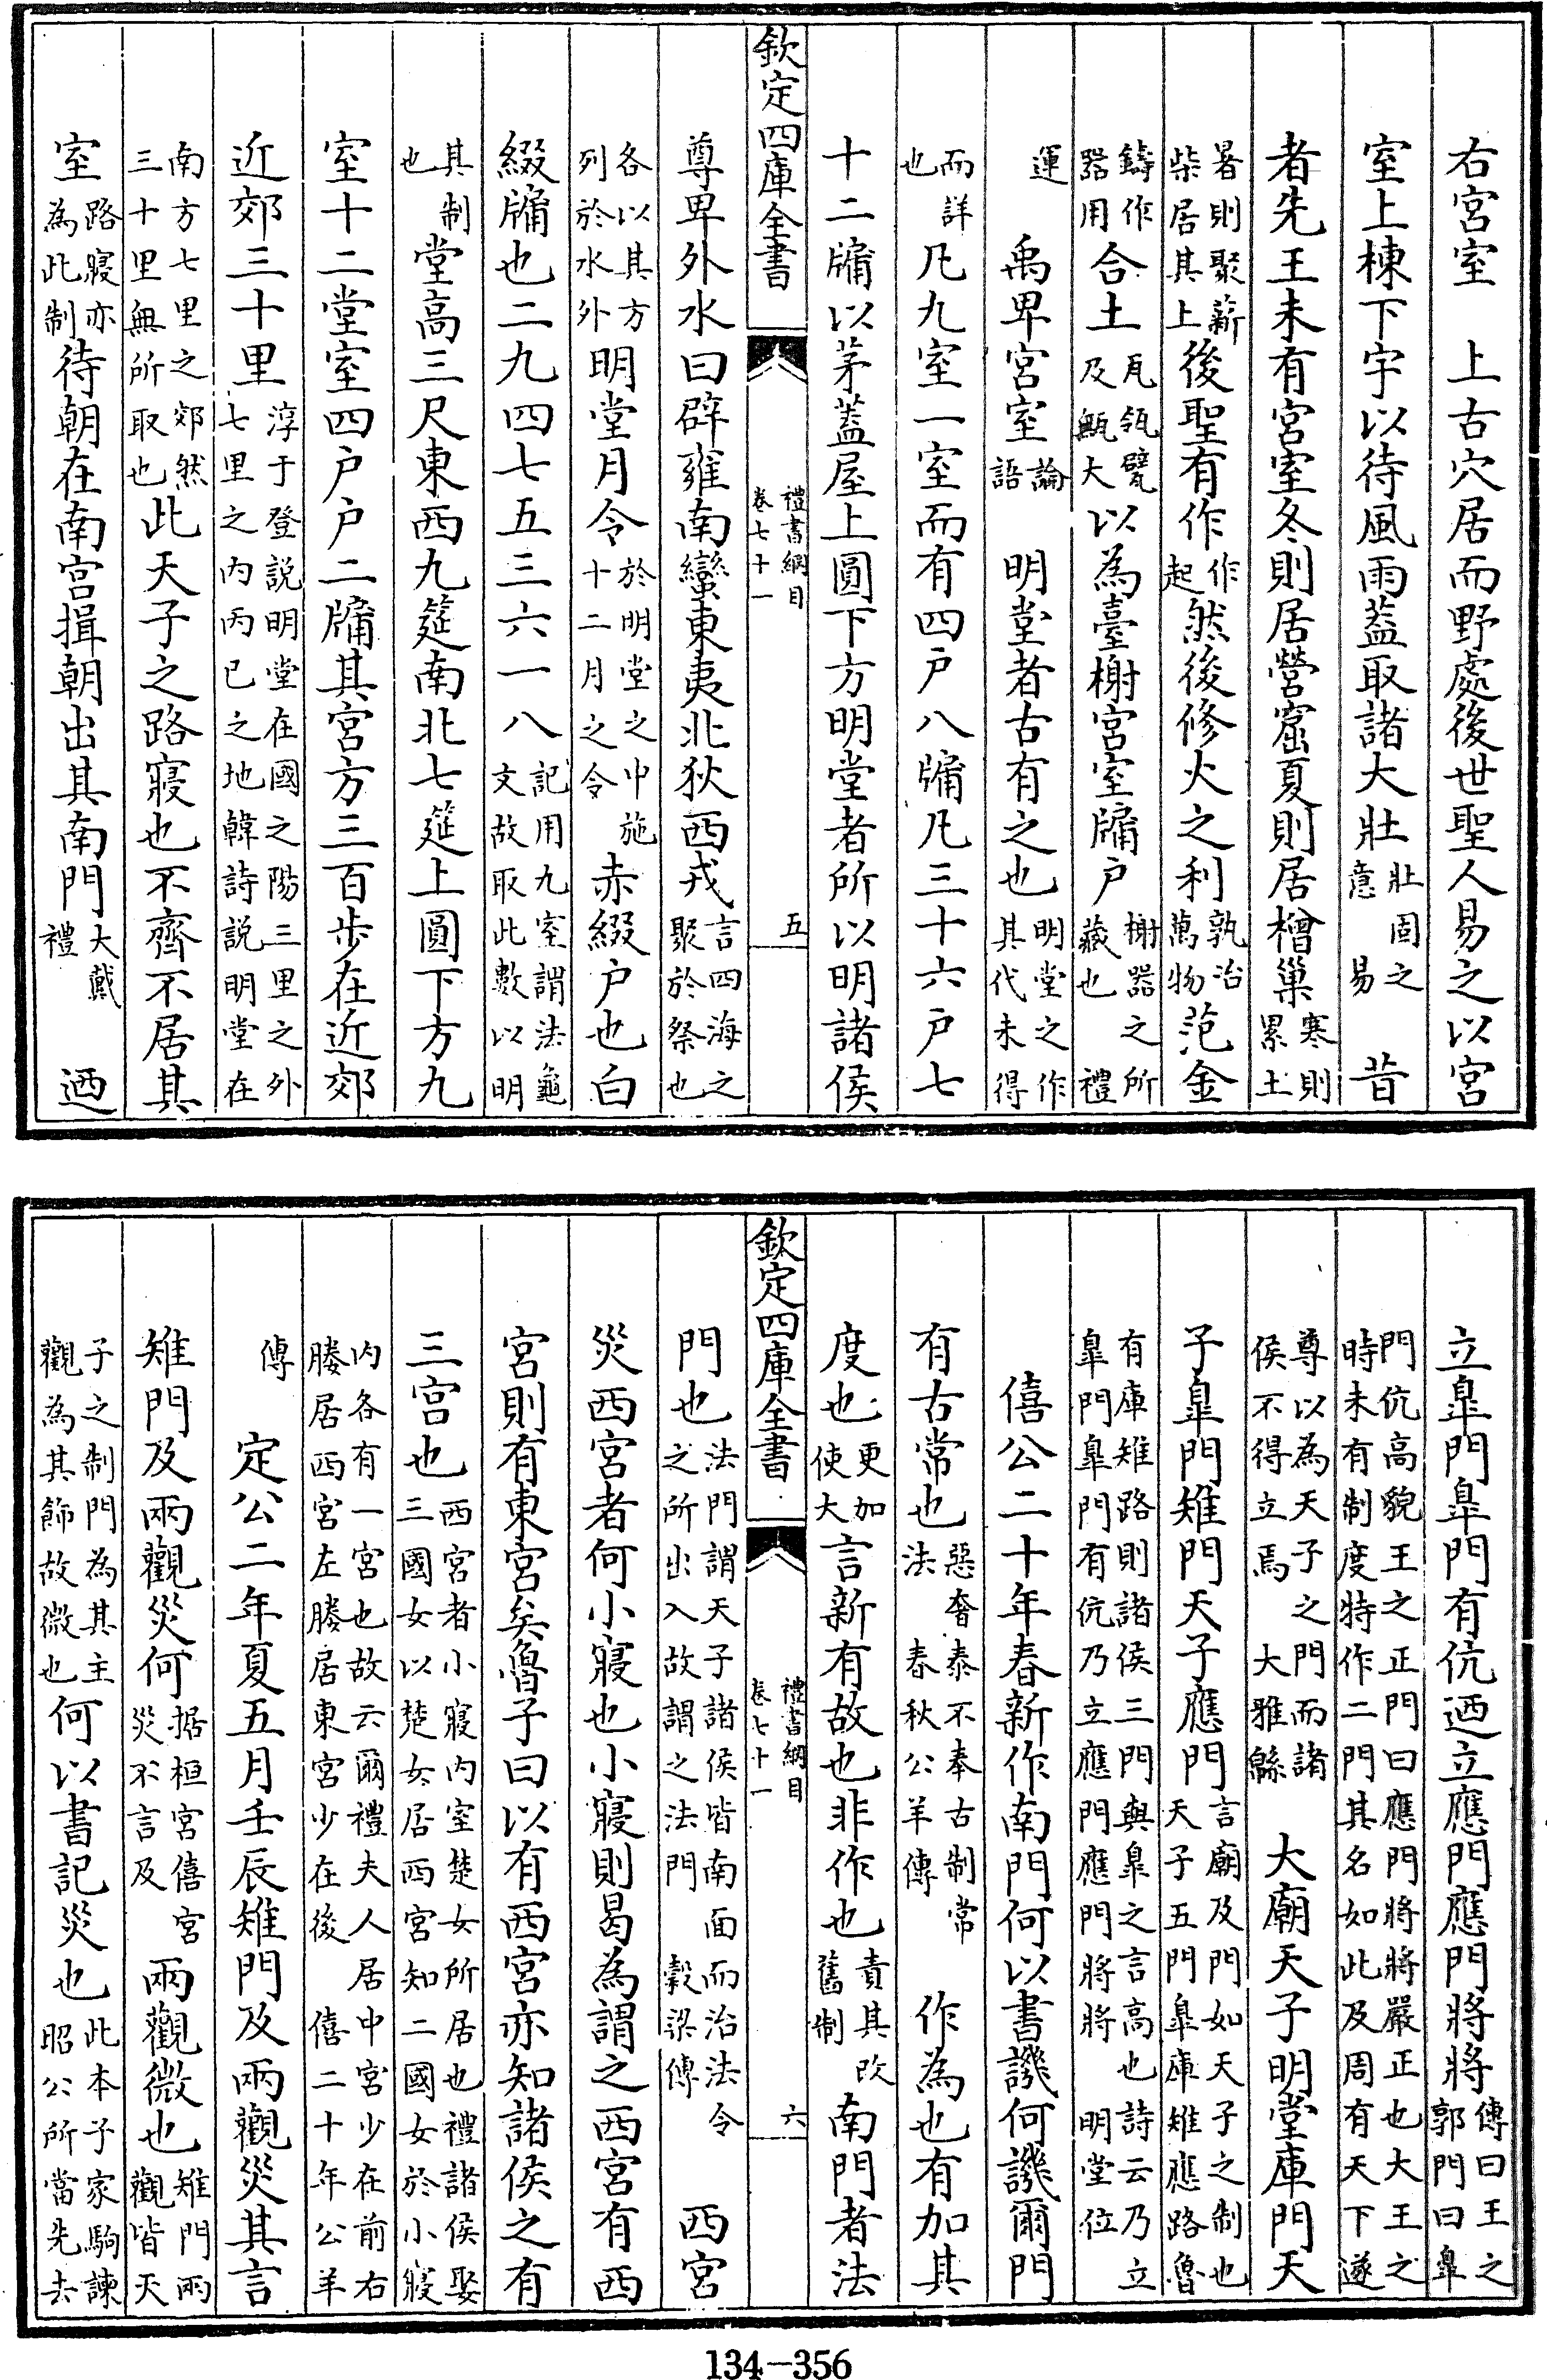 右宮室　上古穴居而野處後世聖人易之以宮
室上棟下宇以待風雨蓋取諸大壯壯固之意　易　昔
者先王未有宮室冬則居營窟夏則居橧巢寒則累土
暑則聚薪柴居其上後聖有作作起然後修火之利孰治萬物范金
鑄作器用合土瓦瓴甓及甒大以為臺榭宮室牖户榭器之所藏也　禮
運　禹卑宮室論語　明堂者古有之也明堂之作其代未得
而詳也凡九室一室而有四户八牖凡三十六户七
十二牖以茅蓋屋上圓下方明堂者所以明諸侯
欽定四庫全書　禮書綱目卷七十一　五
尊卑外水曰辟雍南蠻東夷北狄西戎言四海之聚於祭也
各以其方列於水外明堂月令於明堂之中施十二月之令赤綴户也白
綴牖也二九四七五三六一八記用九室謂法龜文故取此數以明
其制也堂高三尺東西九筵南北七筵上圓下方九
室十二堂室四户户二牖其宮方三百步在近郊
近郊三十里淳于登説明堂在國之陽三里之外七里之内丙巳之地韓詩説明堂在
南方七里之郊然三十里無所取也此天子之路寢也不齊不居其
室路寢亦為此制待朝在南宮揖朝出其南門大戴禮　迺
立臯門臯門有伉迺立應門應門將將傳曰王之郭門曰臯
門伉高貌王之正門曰應門將將嚴正也大王之時未有制度特作二門其名如此及周有天下遂
尊以為天子之門而諸侯不得立焉　大雅緜　大廟天子明堂庫門天
子臯門雉門天子應門言廟及門如天子之制也天子五門臯庫雉應路魯
有庫雉路則諸侯三門與臯之言高也詩云乃立臯門臯門有伉乃立應門應門將將　明堂位
僖公二十年春新作南門何以書譏何譏爾門
有古常也惡奢泰不奉古制常法　春秋公羊傳　作為也有加其
度也更加使大言新有故也非作也責其改舊制南門者法
欽定四庫全書　禮書綱目卷七十一　六
門也法門謂天子諸侯皆南面而治法令之所出入故謂之法門　穀梁傳　西宮
災西宮者何小寢也小寢則曷為謂之西宮有西
宮則有東宮矣魯子曰以有西宮亦知諸侯之有
三宮也西宮者小寢内室楚女所居也禮諸侯娶三國女以楚女居西宮知二國女於小寢
内各有一宮也故云爾禮夫人居中宮少在前右媵居西宮左媵居東宮少在後　僖二十年公羊
傳　定公二年夏五月壬辰雉門及兩觀災其言
雉門及兩觀災何据桓宮僖宮災不言及　兩觀微也雉門兩觀皆天
子之制門為其主觀為其飾故微也何以書記災也此本子家駒諫昭公所當先去
134—356